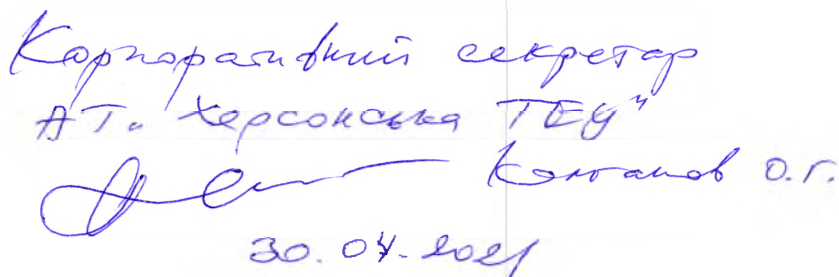 Корпоративний секретар
АТ „Херсонська ТЕЦ"
О.Г.
30.04.2021